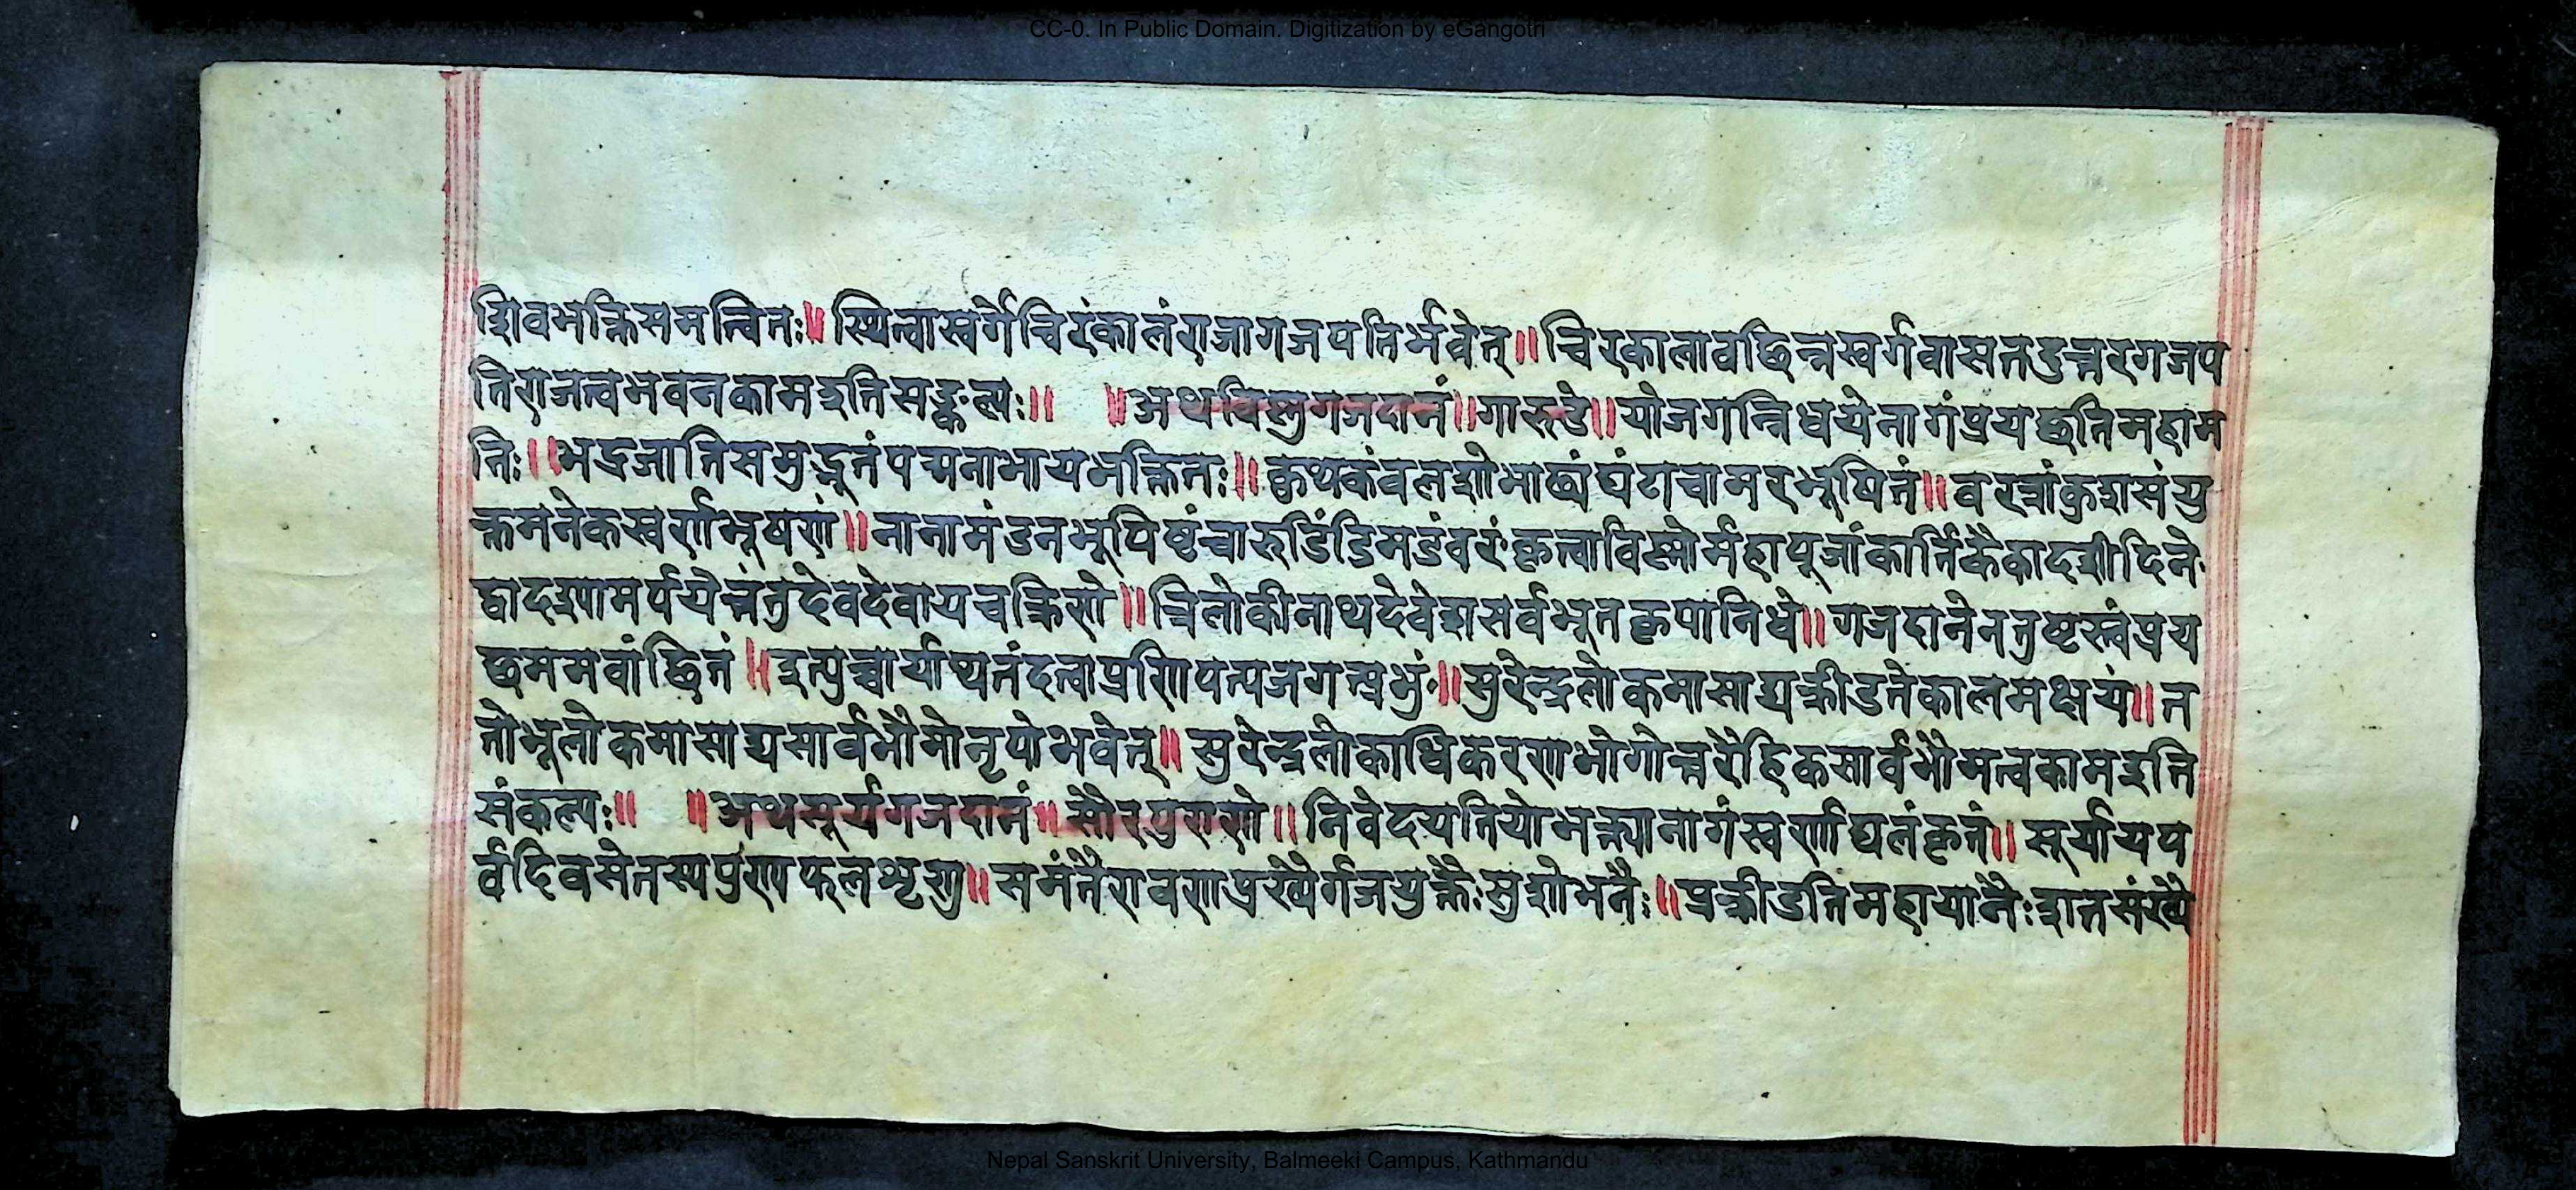 CC-0. In Public Domain. Digitization by eGangotri
शिवभक्तिसमन्वितः॥ स्थित्वास्वर्गेचिरंकालंराजागजपतिर्भवेत्॥ चिरकालावछिन्नस्वर्गवासतदुत्तरगजप
तिराजत्वभवनकामइतिसङ्कल्पः॥ ॥अथविष्णुगजदानं॥गारुडे॥योजगन्निधयेनागंप्रयछतिमहाम
तिः॥भद्रजातिसमुद्भूतंपद्मनाभायभक्तितः॥ कुथकंवलशोभाढ्यंघंटाचामरभूषितं॥वरत्रांकुशसंयु
क्तमनेकस्वर्णभूषणं॥नानामंडनभूषिष्टंचारुडिंडिमडंवरंकृत्वाविष्णोर्महापूजांकार्त्तिकैकादशीदिने
द्वादश्यामर्पयेत्तंतुदेवदेवायचक्रिणे॥ त्रिलोकीनाथदेवेशसर्वभूतकृपानिधे॥गजदानेनतुष्टस्त्वंप्रय
छममवांछितं॥इत्युच्चार्याथतंदत्वाप्रणिपत्यजगत्प्रभुं॥सुरेन्द्रलोकमासाद्यक्रीडतेकालमक्षयं॥त
तोभूलोकमासाद्यसार्वभौमोनृपोभवेत्॥ सुरेन्द्रलोकाधिकरणभोगोत्तरैहिकसार्वभौमत्वकामइति
संकल्पः॥ ॥अथसूर्यगजदानं॥सौरपुराणे॥निवेदयतियोभक्त्यानागंस्वर्णाद्यलंकृतं॥सूर्यायप
र्वदिवसेतस्यपुण्यफलंशृणु॥समंतैरावणप्रख्यैर्गजयुक्तैःसुशोभनैः॥प्रक्रीडतिमहायानैःशतसंख्यै
Nepal Sanskrit University, Balmeeki Campus, Kathmandu